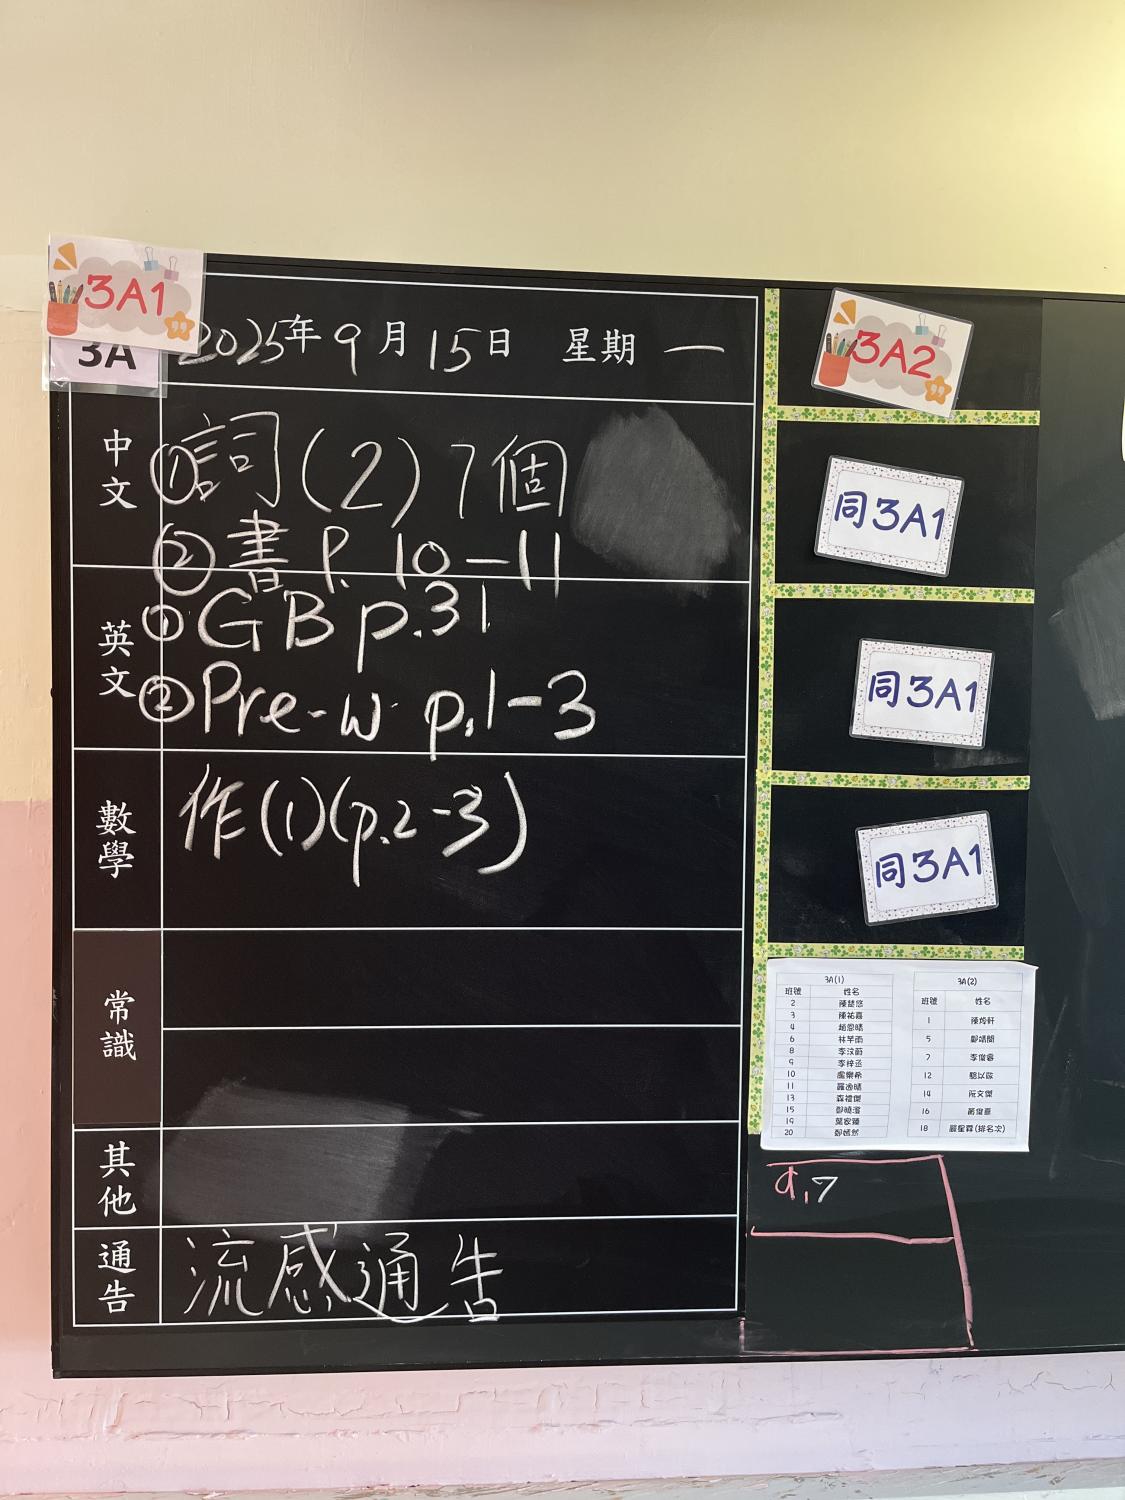 3A1
3A
2025年9月15日 星期一
中文
①詞(2)7個
②書 P. 10-11
英文
①GB p.31
②Pre-w p.1-3
數學
作(1)(p.2-3)
常識
其他
通告
流感通告
3A2
同3A1
同3A1
同3A1
3A(1)
班號 姓名
2
3
4
6
8
9
10
11
13
15
19
20
3A(2)
班號 姓名
1
5
7
12
14 阮文傑
16
18
9,7